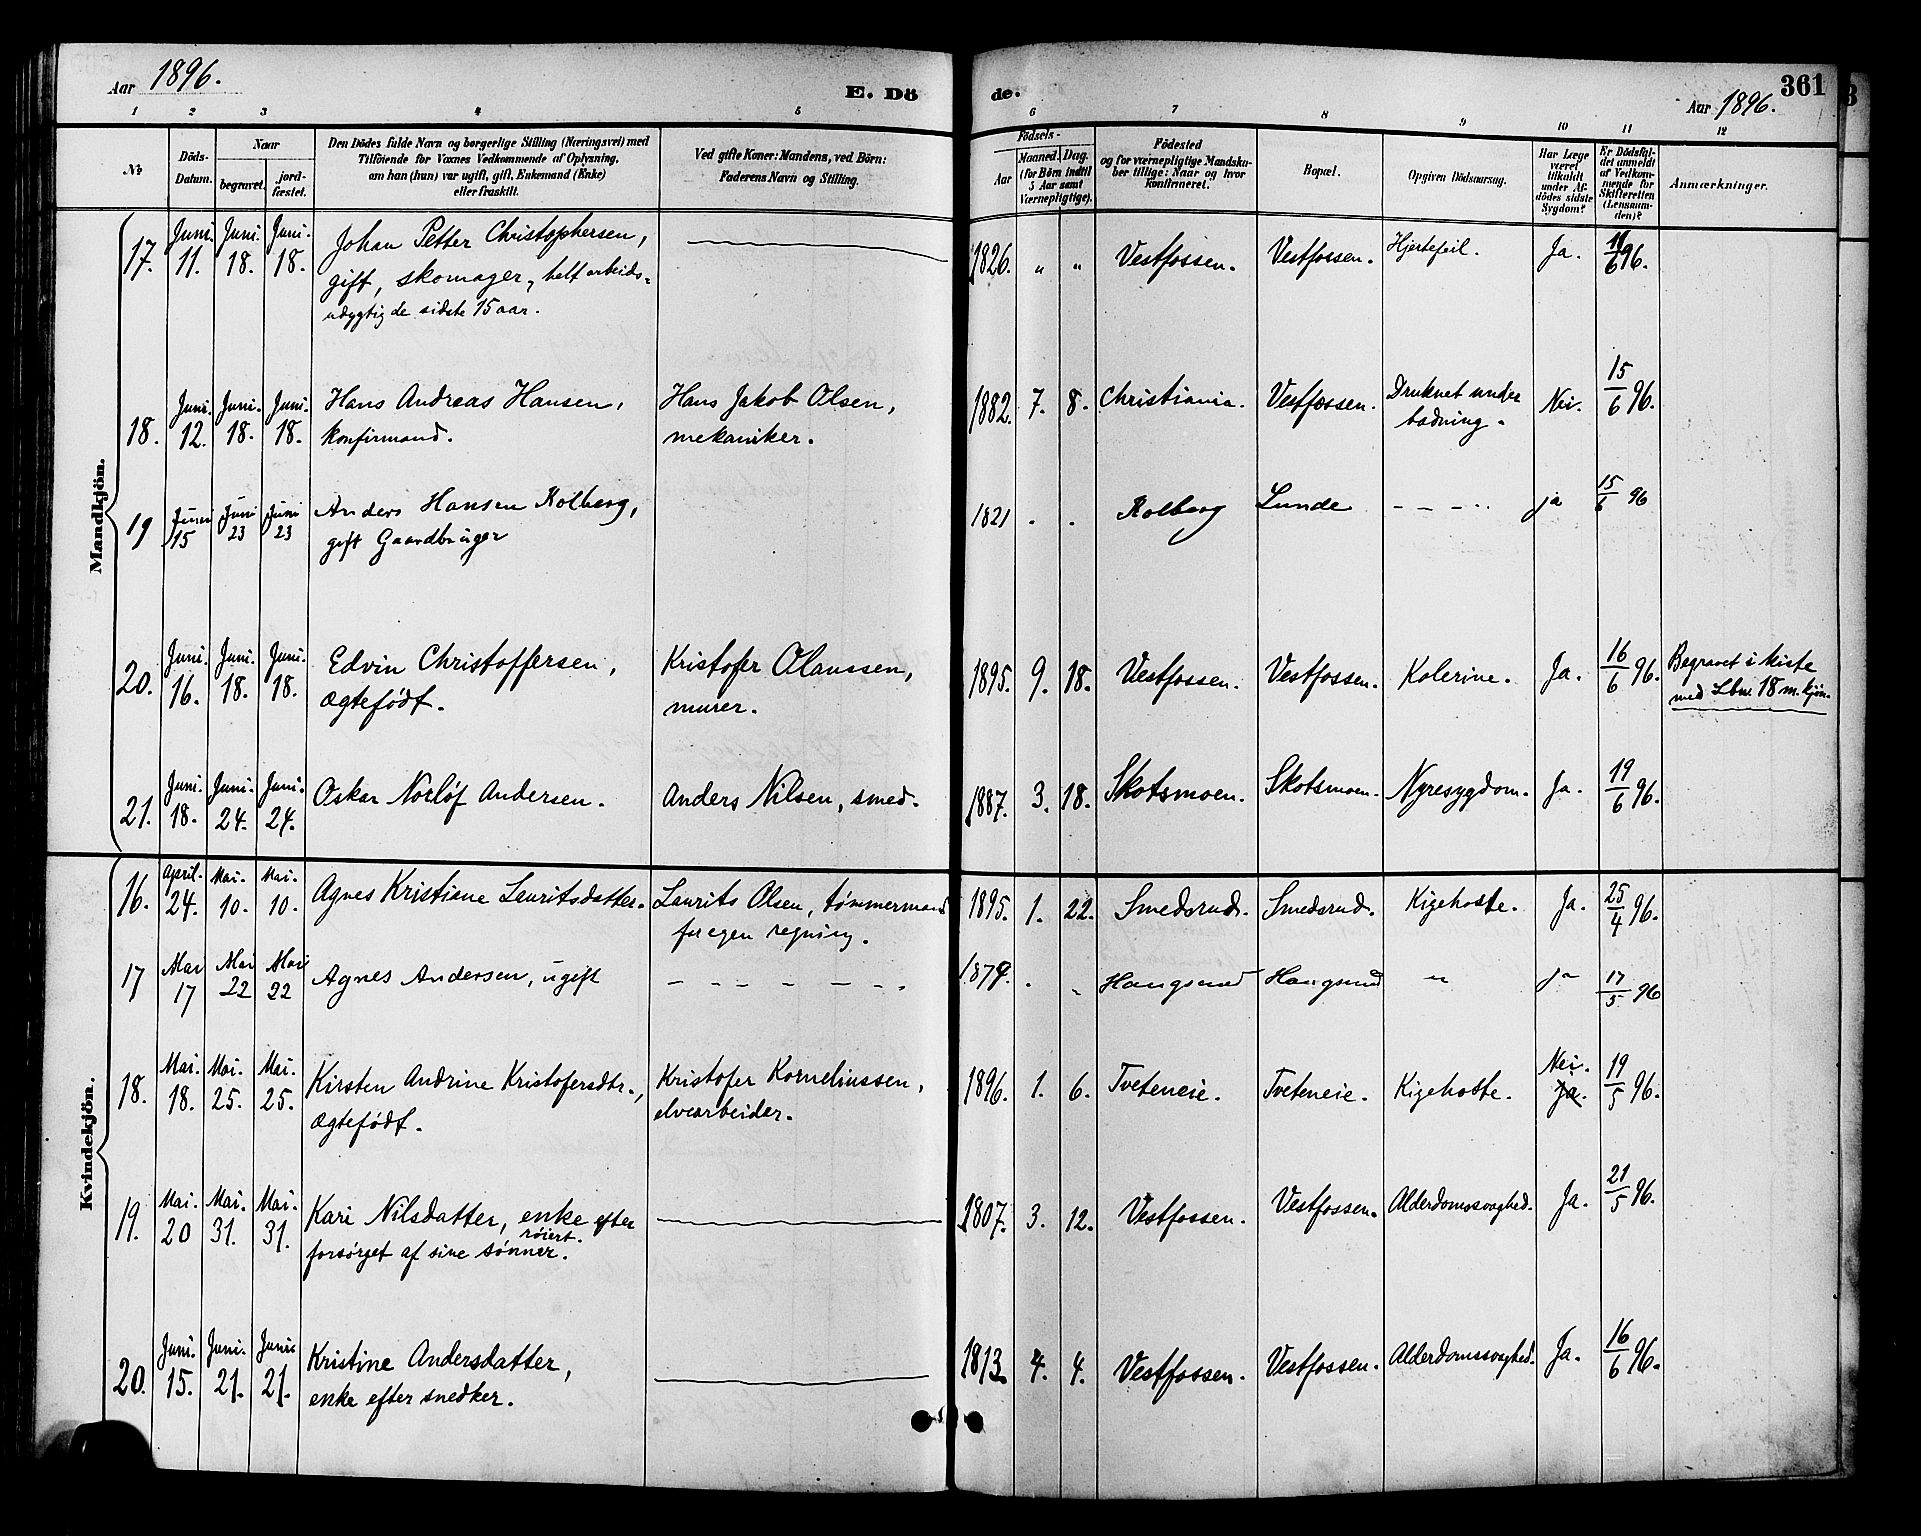 Aar 1896.
E. Dö
de.
361
Aar 1896.
1 2 3 4 5 6 7 8 9 10 11 12
No
Döds-Datum.
Naar
begravet.
jord-fæstet.
Den Dödes fulde Navn og borgerlige Stilling (Næringsvei) med
Tilföiende for Voxnes Vedkommende af Oplysning,
om han (hun) var ugift, gift, Enkemand (Enke)
eller fraskilt.
Ved gifte Koner: Mandens, ved Börn:
Faderens Navn og Stilling.
Födsels-
Aar
Maaned. Dag.
(for Börn indtil
5 Aar samt
Værnepligtige).
Födested
og for værnepligtige Mandska-
ber tillige: Naar og hvor
Konfirmeret.
Bopæl.
Opgiven Dödsaarsag.
Har Læge
været
tilkaldt
under Af-
dödes sidste
Sygdom?
Er Dödsfal-
det anmeldt
af Vedkom-
mende for
Skifteretten
(Lensman-
den)?
Anmærkninger.
Mandkjön.
17. Juni. 11. Juni. 18. Juni. 18. Johan Petter Christophersen, 1826. „ „ Vestfossen. Vestfossen. Hjertefeil. Ja. 11/6 96.
gift, skomager, helt arbeids-
udygtig de sidste 15 aar.
18. Juni. 12. Juni. 18. Juni. 18. Hans Andreas Hansen, Hans Jakob Olsen, 1882. 7. 8. Christiania. Vestfossen. Druknet under Nei. 15/6 96.
konfirmand. mekaniker. badning.
19 Juni 15 Juni 23 Juni 23 Anders Hansen Kolberg, 1821 . . Kolberg Lunde - - - - - ja 15/6 96
gift Gaardbruger
20. Juni. 16. Juni. 18. Juni. 18. Edvin Christoffersen, Kristofer Olaussen, 1895. 9. 18. Vestfossen. Vestfossen. Kolerine. Ja. 16/6 96. Begravet i kiste
ægtefödt. murer. med Lbn. 18 m. kjön.
21. Juni. 18. Juni. 24. Juni. 24. Oskar Norløf Andersen. Anders Nilsen, smed. 1887. 3. 18. Skotsmoen. Skotsmoen. Nyresygdom. Ja. 19/6 96.
Kvindekjön.
16. April. 24. Mai. 10. Mai. 10. Agnes Kristiane Lauritsdatter. Laurits Olsen, tømmermand 1895. 1. 22. Smedsrud. Smedsrud. Kigehoste. Ja. 25/4 96.
for egen regning.
17 Mai 17 Mai 22 Mai 22 Agnes Andersen, ugift - - - - - - - . „ Haugsund Haugsund „ ja 17/5 96
18. Mai. 18. Mai. 25. Mai. 25. Kirsten Andrine Kristofersdtr., Kristofer Korneliussen, 1896. 1. 6. Tveteneie. Tveteneie. Kigehoste. Nei. Ja. 19/5 96.
ægtefödt. elvearbeider.
19. Mai. 20 Mai. 31. Mai. 31. Kari Nilsdatter, enke efter 1807. 3. 12. Vestfossen. Vestfossen. Alderdomssvaghed. Ja. 21/5 96.
forsørget af sine sønner.
20. Juni. 15. Juni. 21. Juni 21. Kristine Andersdatter, 1813. 4. 4. Vestfossen. Vestfossen. Alderdomssvaghed. Ja. 16/6 96.
enke efter snedker.